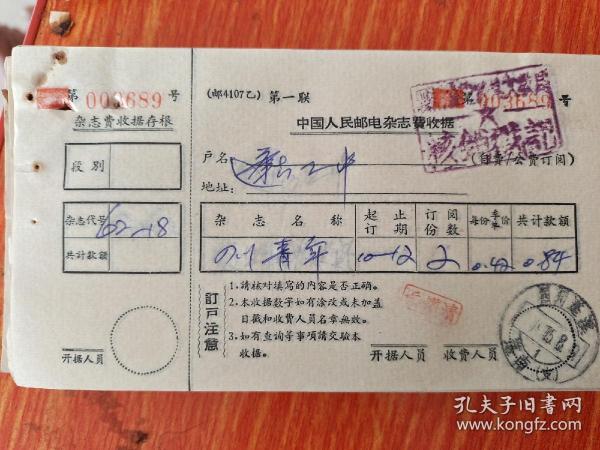 第 003689 号
杂志费收据存根
段别
杂志代号 62-18
共计款额
开据人员
(邮4107乙) 第一联
003689 号
中国人民邮电杂志费收据
户名
(自费/公费订阅)
地址:
杂志名称 起止订期 订阅份数 每份季价 共计款额
青年 10-12 2 0.42 0.84
訂戶注意
1.请核对填写的内容是否正确。
2.本收据数字如有涂改或未加盖
日戳和收费人员名章無效。
3.如有查詢等事項請交驗本
收据。
开据人员 收费人员
孔夫子旧书网
kongfz.com